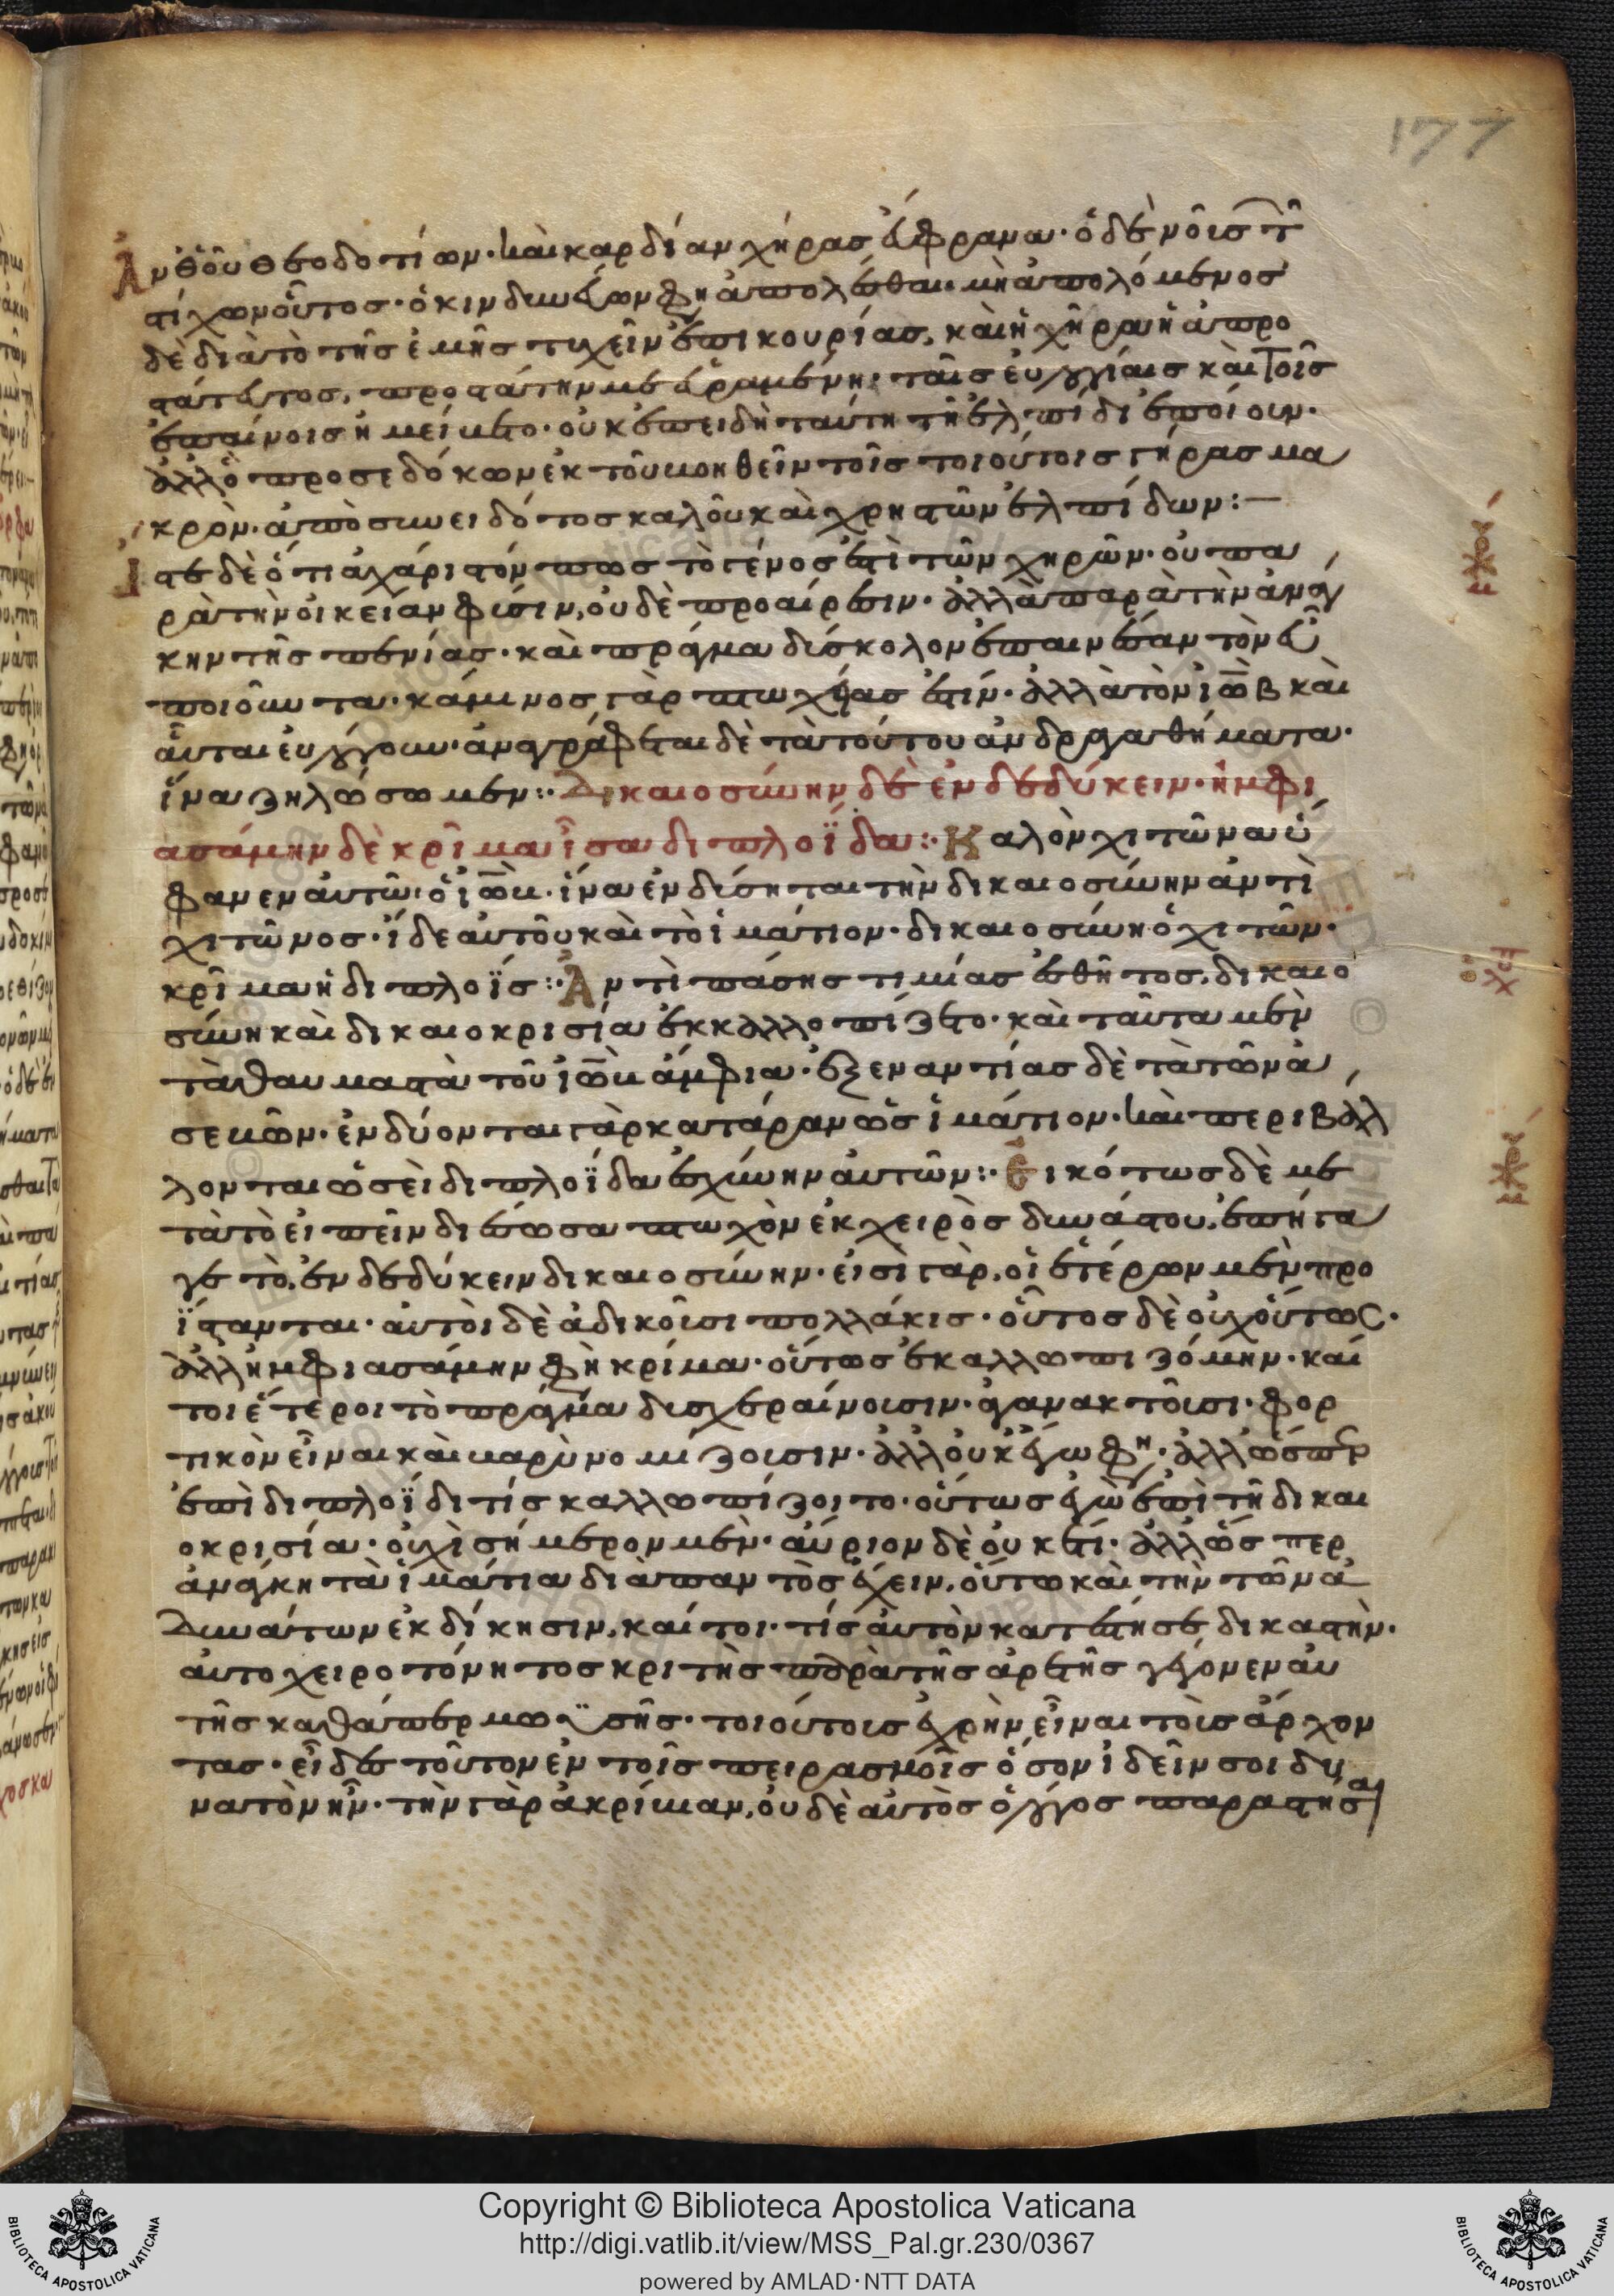 177
Ἀνθ' οὗ Θεοδοτίων· καὶ καρδίαν χήρας εὔφρανα· ὁ δὲ νοῦς τῶ
στίχων οὗτος· ὁ κινδυνεύων φη ἀπολέσθαι· μὴ ἀπολόμενος
δὲ διὰ τὸ τῆς ἐμῆς τυχεῖν ἐπικουρίας, καὶ ἡ χῆρα ἡ ἀπρο
στάτευτος, προστάτην με εὑραμένη· ταῖς εὐλογίαις καὶ τοῖς
ἐπαίνοις ἠμείβετο· οὐκ ἐπειδὴ ταύτη τῆ ἐλπίδι ἐποίουν·
ἀλλ' ὃ προσεδόκων ἐκ τοῦ βοηθεῖν τοῖς τοιούτοις γῆρας μα
κρὸν· ἀπὸ συνειδότος καλοῦ καὶ χρηστῶν ἐλπίδων:—
Ἴστε δὲ ὅτι ἀχάριστόν πως τὸ γένος ἐστὶ τῶν χηρῶν· οὐ πα
ρὰ τὴν οἰκείαν φύσιν, οὐδὲ προαίρεσιν· ἀλλὰ παρὰ τὴν ἀνάγ
κην τῆς πενίας· καὶ πρᾶγμα δύσκολον ἐπαινέσαν τὸν εὖ
ποιοῦντα· κάμινος γὰρ πτωχείας ἐστίν· ἀλλὰ τὸν ἰὼβ καὶ
αὗται εὐλόγουν· ἀναγράφεται δὲ τὰ τούτου ἀνδραγαθήματα·
ἵνα ζηλώσωμεν:· Δικαιοσύνην δὲ ἐνδεδύκειν· ἠμφι
ασάμην δὲ κρῖμα ἶσα διπλοΐδα:· Καλὸν χιτῶνα ὑ
φανεν αὐτῶ ὁ ἰὼβ· ἵνα ἐνδύσηται τὴν δικαιοσύνην ἀντὶ
χιτῶνος· ἴδε αὐτοῦ καὶ τὸ ἱμάτιον· δικαιοσύνη ὁ χιτῶν·
κρῖμα ἡ διπλοΐς:· Ἀντὶ πάσης τιμίας ἐσθῆτος, δικαιο
σύνη καὶ δικαιοκρισία ἐκαλλωπίζετο· καὶ ταῦτα μὲν
τὰ θαυμαστὰ τοῦ ἰὼβ ἄμφια· ἐξεναντίας δὲ τὰ τῶν ἀ
σεβῶν· ἐνδύονται γὰρ κατάραν ὡς ἱμάτιον· καὶ περιβάλ
λονται ὡσεὶ διπλοΐδα αἰσχύνην αὐτῶν:· Εἰκότως δὲ με
τὰ τὸ εἰπεῖν διέσωσα πτωχὸν ἐκ χειρὸς δυνάστου, ἐπήγα
γε τὸ, ἐνδεδύκειν δικαιοσύνην· εἰσὶ γὰρ, οἳ ἑτέρων μὲν προ
ΐστανται· αὐτοὶ δὲ ἀδικοῦσι πολλάκις· οὗτος δὲ οὐχ οὕτως·
ἀλλ' ἠμφιασάμην φη κρίμα· οὕτως ἐκαλλωπιζόμην· καί
τοι ἕτεροι τὸ πρᾶγμα δυσχεραίνουσιν· ἀγανακτοῦσι· φορ
τικὸν εἶναι καὶ βαρὺ νομίζουσιν· ἀλλ' οὐκ ἐγώ φη· ἀλλ' ὥσπερ
ἐπὶ διπλοΐδι τίς καλλωπίζοιτο· οὕτως ἐγὼ ἐπὶ τῆ δικαι
οκρισία· οὐχὶ σήμερον μὲν· αὔριον δὲ οὐκέτι· ἀλλ' ὥσπερ
ἀνάγκη τὰ ἱμάτια διαπαντὸς ἔχειν, οὕτω καὶ τὴν τῶν ἀ
δυνάτων ἐκδίκησιν, καίτοι· τίς αὐτὸν κατέστησε δικαστὴν·
αὐτοχειροτόνητος κριτὴς παρὰ τῆς ἀρετῆς γέγονεν αὐ
τῆς καθάπερ μωϋσῆς· τοιούτους ἐχρῆν εἶναι τοὺς ἄρχον
τας· εἶδες τοῦτον ἐν τοῖς πειρασμοῖς ὅσον ἰδεῖν σοι δυ
νατὸν ἦν· τὴν γὰρ ἀκρίβειαν, οὐδὲ αὐτὸς ὁ λόγος παραστῆσαι
Copyright © Biblioteca Apostolica Vaticana
http://digi.vatlib.it/view/MSS_Pal.gr.230/0367
powered by AMLAD·NTT DATA
BIBLIOTECA APOSTOLICA VATICANA
BIBLIOTECA APOSTOLICA VATICANA